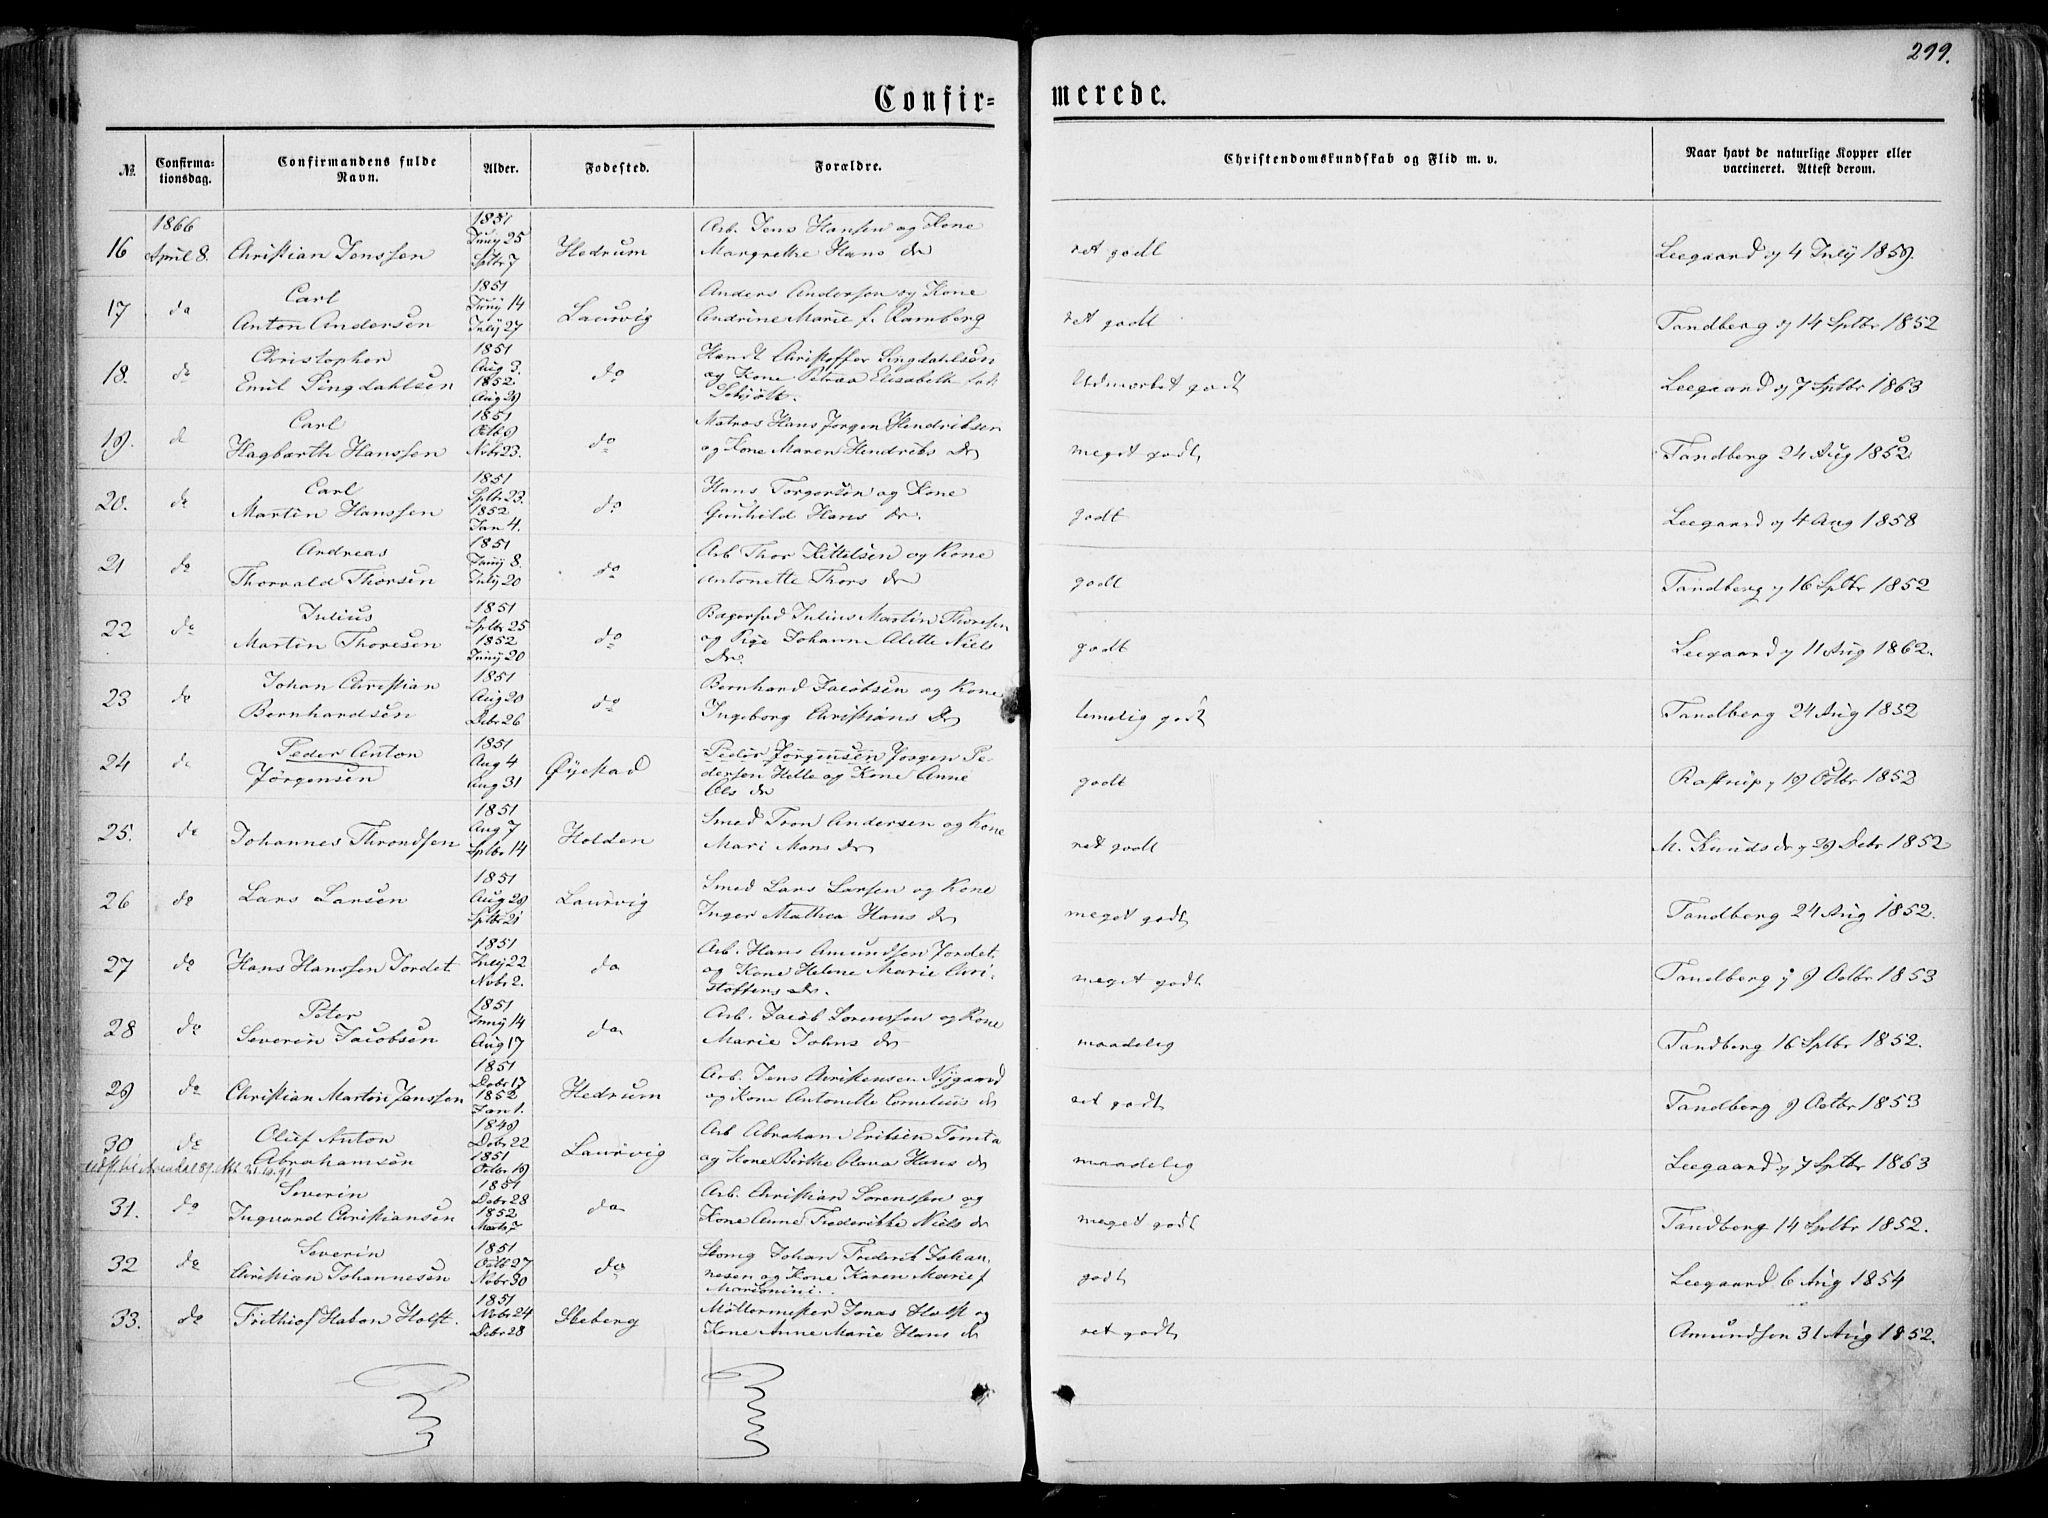 299.
Confir-
merede.
№ Confirma-tionsdag. Confirmandens fulde Navn. Alder. Fødested. Forældre. Christendomskundskab og Flid m. v. Naar havt de naturlige Kopper eller vaccineret. Attest derom.
1866 1851
16 April 8. Christian Jenssen Juny 25 Sptbr 7 Hedrum Arb. Jens Hansen og Kone
Margrethe Hans dr ret godt Leegaard 4 July 1859.
Carl 1851 Anders Andersen og Kone
17 do Anton Andersen Juny 14 July 27 Laurvig Andrine Marie f. Ramberg ret godt Tandberg 14 Sptbr 1852
Christopher 1851 Aug 3. Handl Christoffer Singdahlsen
18. do Emil Singdahlsen 1852. Aug 29 do og Kone Petrea Elisabeth Udmærket godt Leegaard 7 Sptbr 1863
Carl 1851 Matros Hans Jørgen Hendriksen
19. do Hagbarth Hanssen Octb 9 Nobr 23. do og Kone Maren Hendriks Dr meget godt Tandberg 24 Aug 1852
Carl 1851 Sptbr 23. Hans Torgersen og Kone
20. do Martin Hanssen 1852 Jan 4. do Gunhild Hans dr. godt Leegaard 4 Aug 1858
Andreas 1851 Arb Thor Kittelsen og Kone
21 do Thorvald Thorsen Juny 8. July 20 do Antonette Thors dr godt Tandberg 16 Sptbr 1852
Julius 1851 Sptbr 25 Bagersvd Julius Martin Thoresen
22 do Martin Thoresen 1852 Juny 20 do og Pige Johanne Alette Niels
Dr. godt Leegaard 11 Aug 1862.
Johan Christian 1851 Bernhard Jacobsen og Kone
23 do Bernhardsen Aug 20 Debr 26 do Ingeborg Christians Dr temelig godt Tandberg 24 Aug 1852
Peder Anton 1851 Peder Jørgensen Jørgen Pe-
24 do Jørgensen Aug 4 Aug 31 Øyestad dersen Helle og Kone Anne
Ols dr godt Rastrup 19 Octbr 1852
25. do Johannes Throndsen 1851 Aug 7 Sptbr 14 Holden Smed Tron Andersen og Kone
Mari Mons dr ret godt M. Knudsdr 29 Debr 1852
26 do Lars Larsen 1851 Aug 29 Sptbr 21 Laurvig Smed Lars Larsen og Kone
Inger Mathea Hans dr meget godt Tandberg 24 Aug 1852.
27 do Hans Hanssen Jordet 1851 July 22 Nobr 2. do Arb. Hans Amundsen Jordet
og Kone Helene Marie Chri-
stoffers dr. meget godt Tandberg 9 Octbr 1853
Peter 1851 Arb. Jacob Sorenssen og Kone
28 do Severin Jacobsen Juny 14 Aug 17 do Marie Johns dr maadelig Tandberg 16 Sptbr 1852.
29 do Christian Martin Janssen 1851 Debr 17 1852 Jan 1. Hedrum Arb. Jens Christensen Nygaard
og Kone Antonette Cornelius dr ret godt Tandberg 9 Octbr 1853
30 do Oluf Anton 1849 Debr 22 Arb Abraham Eriksen Tomta
Abrahamsen 1851 Octbr 19 Laurvig og Kone Birthe Olava Hans dr maadelig Leegaard 7 Sptbr 1863
Severin 1851 Debr 28 Arb. Christian Sorenssen og
31. do Ingvard Christiansen 1852 Marts 7 do Kone Anne Frederikke Niels dr meget godt Tandberg 14 Sptbr 1852.
Severin 1851 Johan Frederik Johan-
32 do Christian Johannesen Octb 27 Nobr 30 do nesen og Kone Karen Marie f
godt Leegaard 6 Aug 1854
33. do Frithiof Habon Holst. 1851 Nobr 24 Debr 28 Møllermester Jonas Holst og
Kone Anne Marie Hans dr ret godt Amundsen 31 Aug 1852.